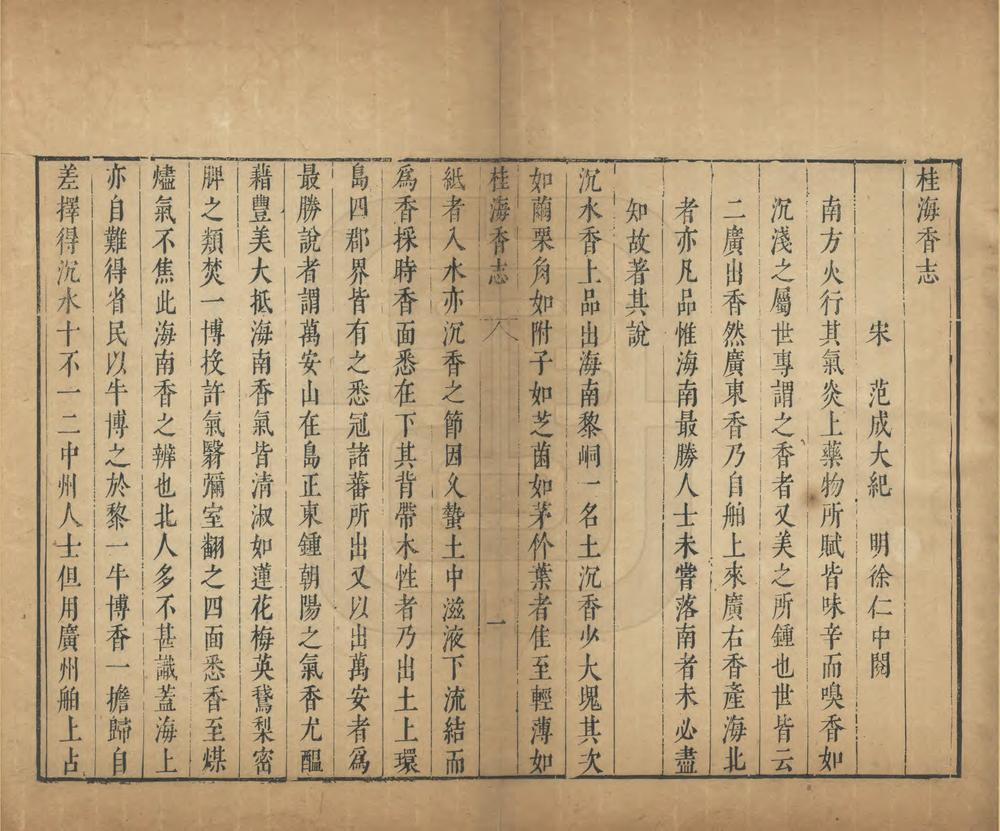 桂海香志
宋　范成大紀　明徐仁中閱
南方火行其氣炎上藥物所賦皆味辛而嗅香如
沉淺之屬世專謂之香者又美之所鍾也世皆云
二廣出香然廣東香乃自舶上來廣右香產海北
者亦凡品惟海南最勝人士未嘗落南者未必盡
知故著其說
沉水香上品出海南黎峒一名土沉香少大塊其次
如繭栗角如附子如芝菌如茅竹葉者佳至輕薄如
桂海香志　一
紙者入水亦沉香之節因久蟄土中滋液下流結而
為香採時香面悉在下其背帶木性者乃出土上環
島四郡界皆有之悉冠諸蕃所出又以出萬安者為
最勝說者謂萬安山在島正東鍾朝陽之氣香尤醞
藉豐美大抵海南香氣皆清淑如蓮花梅英鵞梨密
脾之類焚一博投許氣翳彌室翻之四面悉香至煤
燼氣不焦此海南香之辨也北人多不甚識蓋海上
亦自難得省民以牛博之於黎一牛博香一擔歸自
差擇得沉水十不一二中州人士但用廣州舶上占